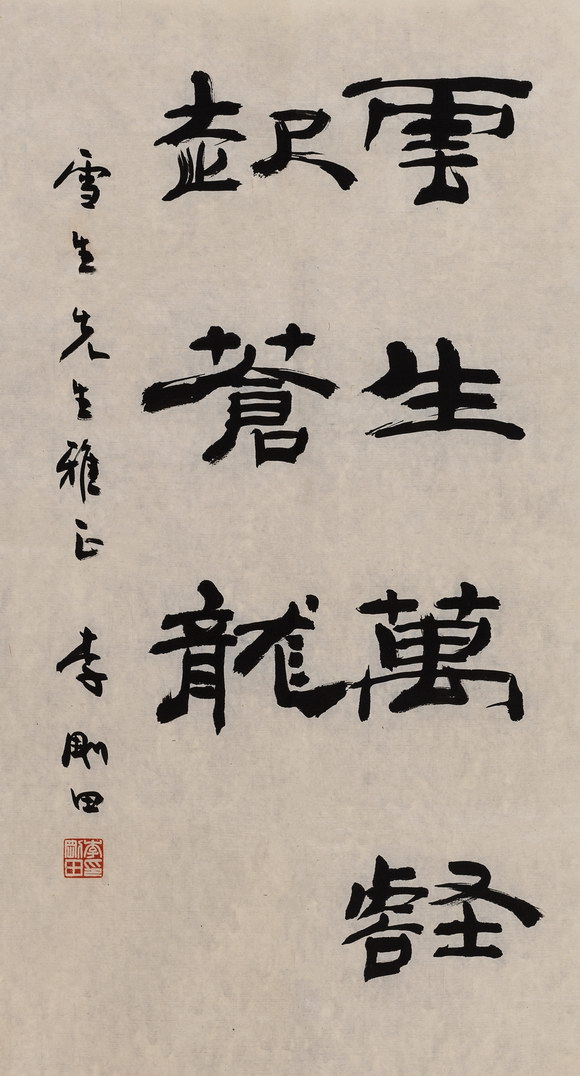 雲生萬壑
起蒼龍
雪生先生雅正 李剛田
李剛田印